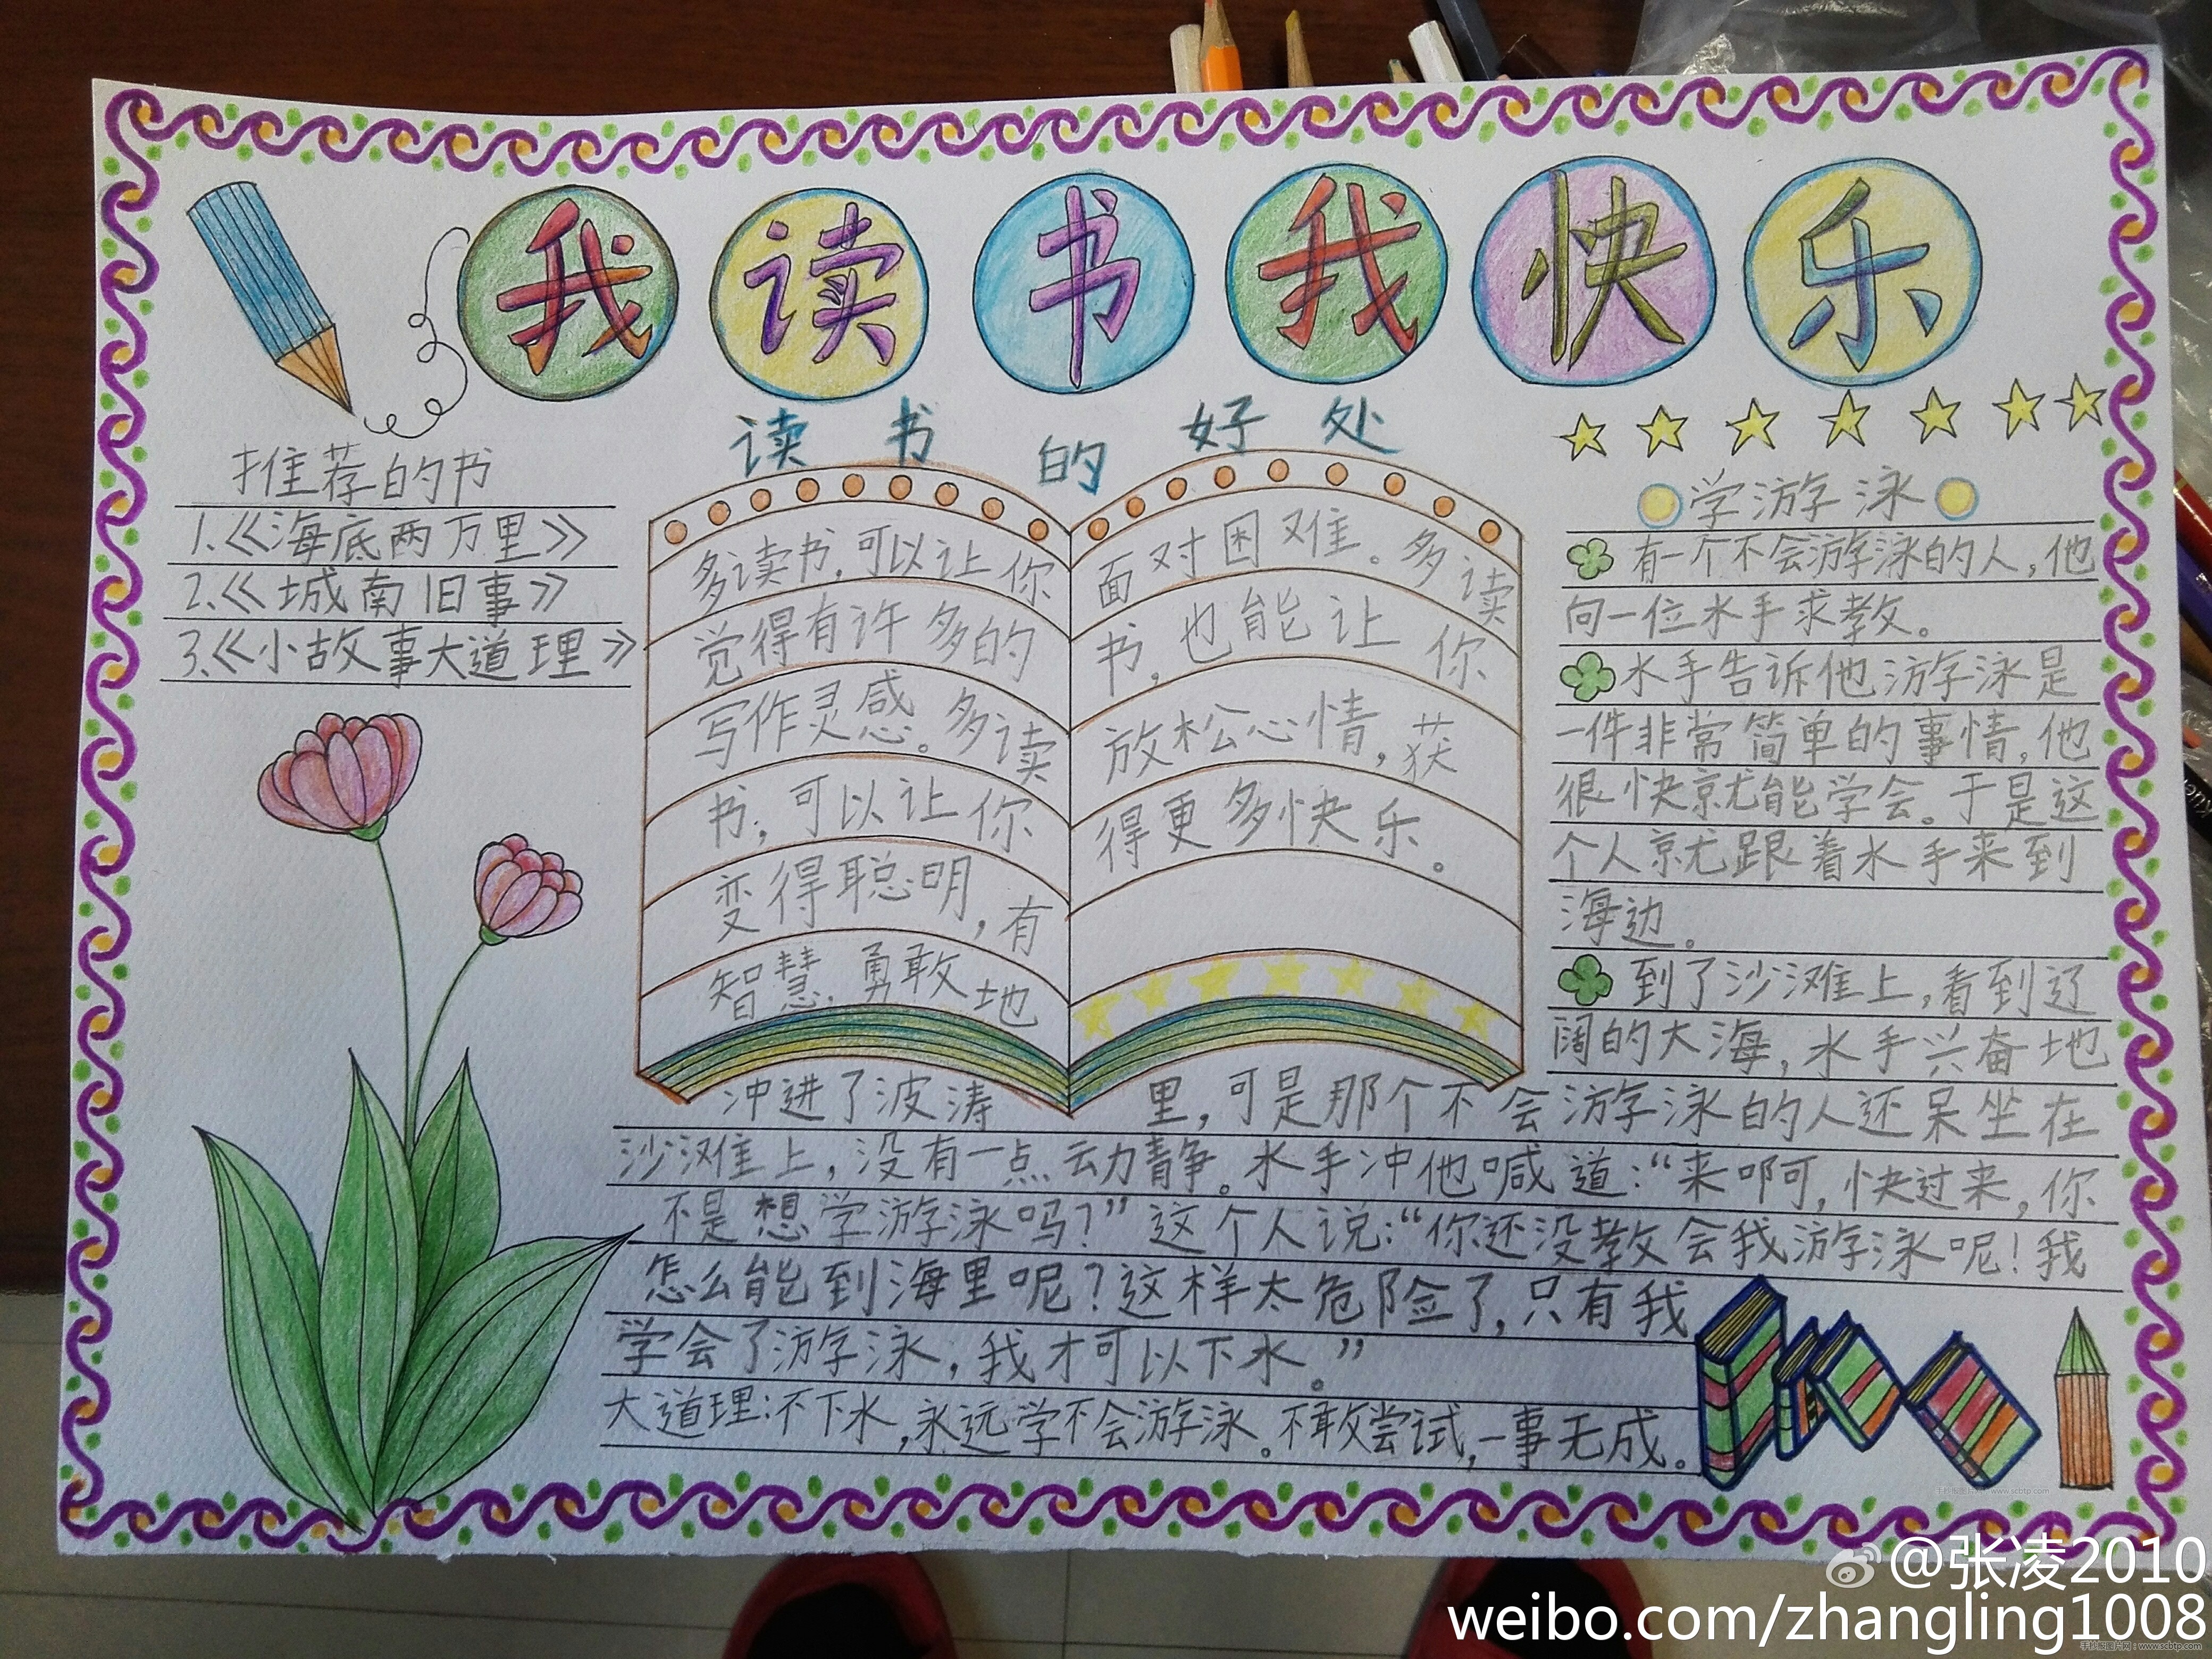 我读书我快乐
推荐的书
1.《海底两万里》
2.《城南旧事》
3.《小故事大道理》
读书的好处
多读书,可以让你
觉得有许多的
写作灵感。多读
书,可以让你
变得聪明,有
智慧,勇敢地
面对困难。多读
书,也能让你
放松心情,获
得更多快乐。
学游泳
有一个不会游泳的人,他
向一位水手求教。
水手告诉他游泳是
一件非常简单的事情,他
很快就能学会。于是这
个人就跟着水手来到
海边。
到了沙滩上,看到辽
阔的大海,水手兴奋地
冲进了波涛里,可是那个不会游泳的人还呆坐在
沙滩上,没有一点动静。水手冲他喊道:“来啊,快过来,你
不是想学游泳吗?”这个人说:“你还没教会我游泳呢!我
怎么能到海里呢?这样太危险了,只有我
学会了游泳,我才可以下水。”
大道理:不下水,永远学不会游泳。不敢尝试,一事无成。
@张凌2010
weibo.com/zhangling1008
手抄报图片网:www.scbtp.com